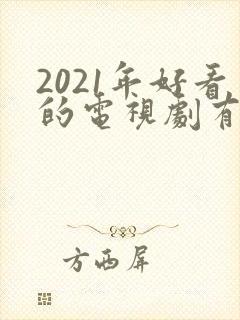 2021年好看
的電視劇有
方西屏